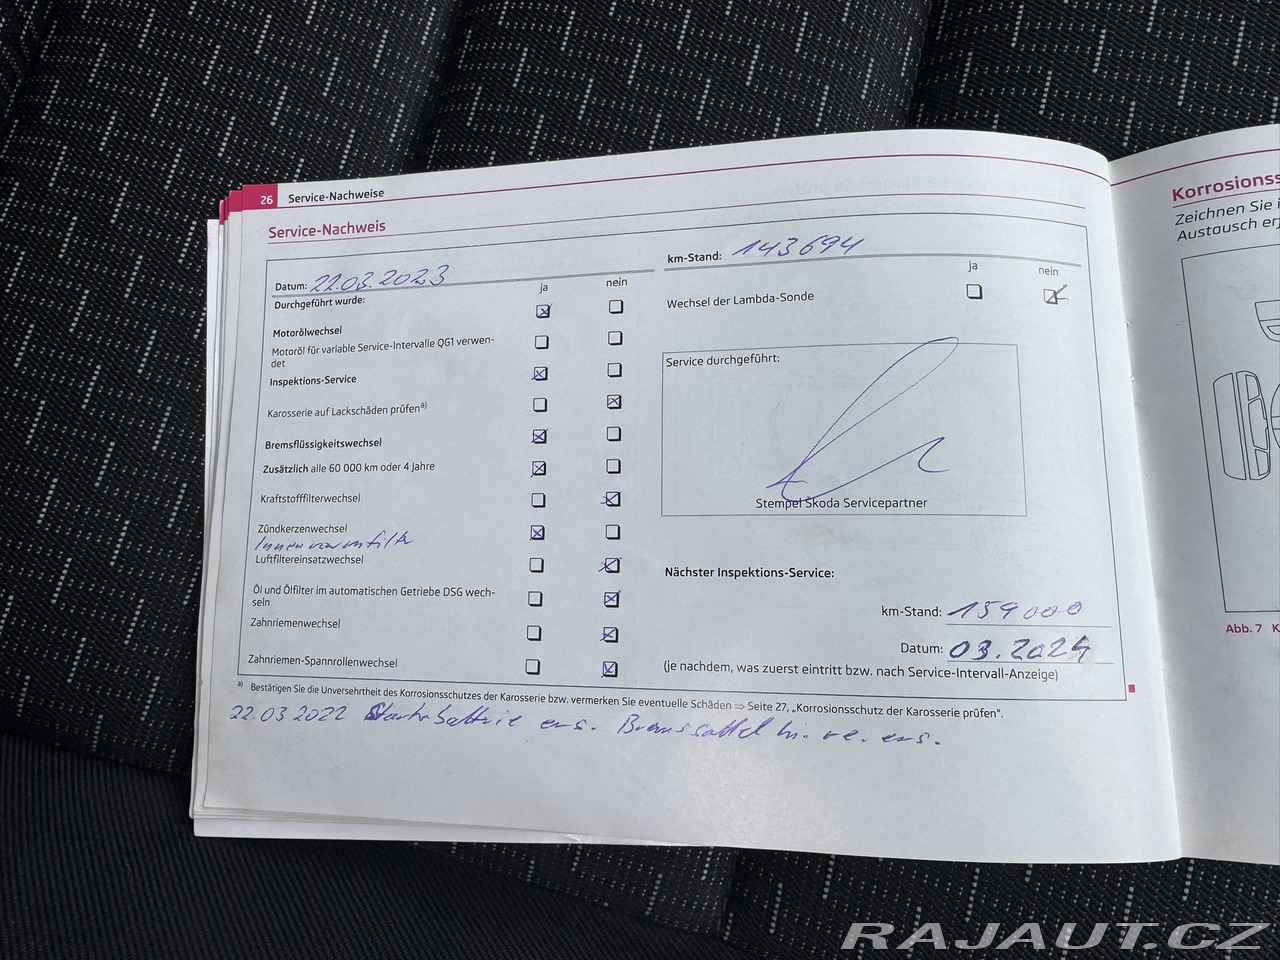 26 Service-Nachweise
Service-Nachweis
Datum: 22.03.2023
km-Stand: 143694
Durchgeführt wurde:
ja nein
ja nein
Motorölwechsel
Motoröl für variable Service-Intervalle QG1 verwen-
det
Inspektions-Service
Karosserie auf Lackschäden prüfena)
Bremsflüssigkeitswechsel
Zusätzlich alle 60 000 km oder 4 Jahre
Kraftstofffilterwechsel
Zündkerzenwechsel
Innenraumfilter
Luftfiltereinsatzwechsel
Öl und Ölfilter im automatischen Getriebe DSG wech-
seln
Zahnriemenwechsel
Zahnriemen-Spannrollenwechsel
Wechsel der Lambda-Sonde
Service durchgeführt:
Stempel Škoda Servicepartner
Nächster Inspektions-Service:
km-Stand: 159000
Datum: 03.2024
(je nachdem, was zuerst eintritt bzw. nach Service-Intervall-Anzeige)
a) Bestätigen Sie die Unversehrtheit des Korrosionsschutzes der Karosserie bzw. vermerken Sie eventuelle Schäden ⇒ Seite 27, „Korrosionsschutz der Karosserie prüfen“.
22.03.2022 Starterbatterie ers. Bremssattel hi. re. ers.
Korrosionss
Zeichnen Sie i
Austausch erf
Abb. 7 K
RAJAUT.CZ